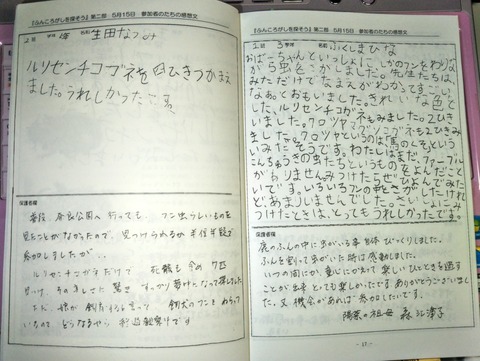 『ふんころがしを探そう』第二部　5月15日　参加者のたちの感想文
2部 学年 1年 名前 生田なつみ
ルリセンチコガネを四ひきつかまえ
ました。うれしかったです
保護者様
普段、奈良公園へ行っても、フン虫らしいものを
見たことがなかったので、見つけられるか半信半疑で
参加しましたが、
ルリセンチコガネだけで 死骸も含め 7匹
見つけ、その美しさに驚き すっかり夢中になって探しました。
『ふんころがしを探そう』第二部　5月15日　参加者のたちの感想文
2部 3学年 名前 ふくしまひな
おばーちゃんといっしょに、しかのフンをわりな
がら虫をさがしました。先生たちは、
みただけでなまえがわかってすごい
なぁ。とおもいました。きれいな色を
した、ルリセンチコガネもみました。2ひき
いました。クロツヤマグソコガネも2ひきみ
ました。クロツヤというのは「馬のくそ」という
いみだそうです。わたしはまだ、ファーブル
こんちゅうきの虫たちというものをよんだこと
がありません。みつけたらぜひよんでみた
いです。いろいろフンの中をさがしたけれ
ど、あまりいませんでした。さいしょにみ
つけたときは、とってもうれしかったです。
保護者様
鹿のふんの中に虫がいる事自体びっくりしました。
ふんを割って虫がいた時は感動しました。
いつの間にか、童心にかえって楽しいひとときを過す
ことが出来とても楽しかったです。ありがとうございまし
た。又、機会があれば参加したいです。
陽菜の祖母 森
-17-